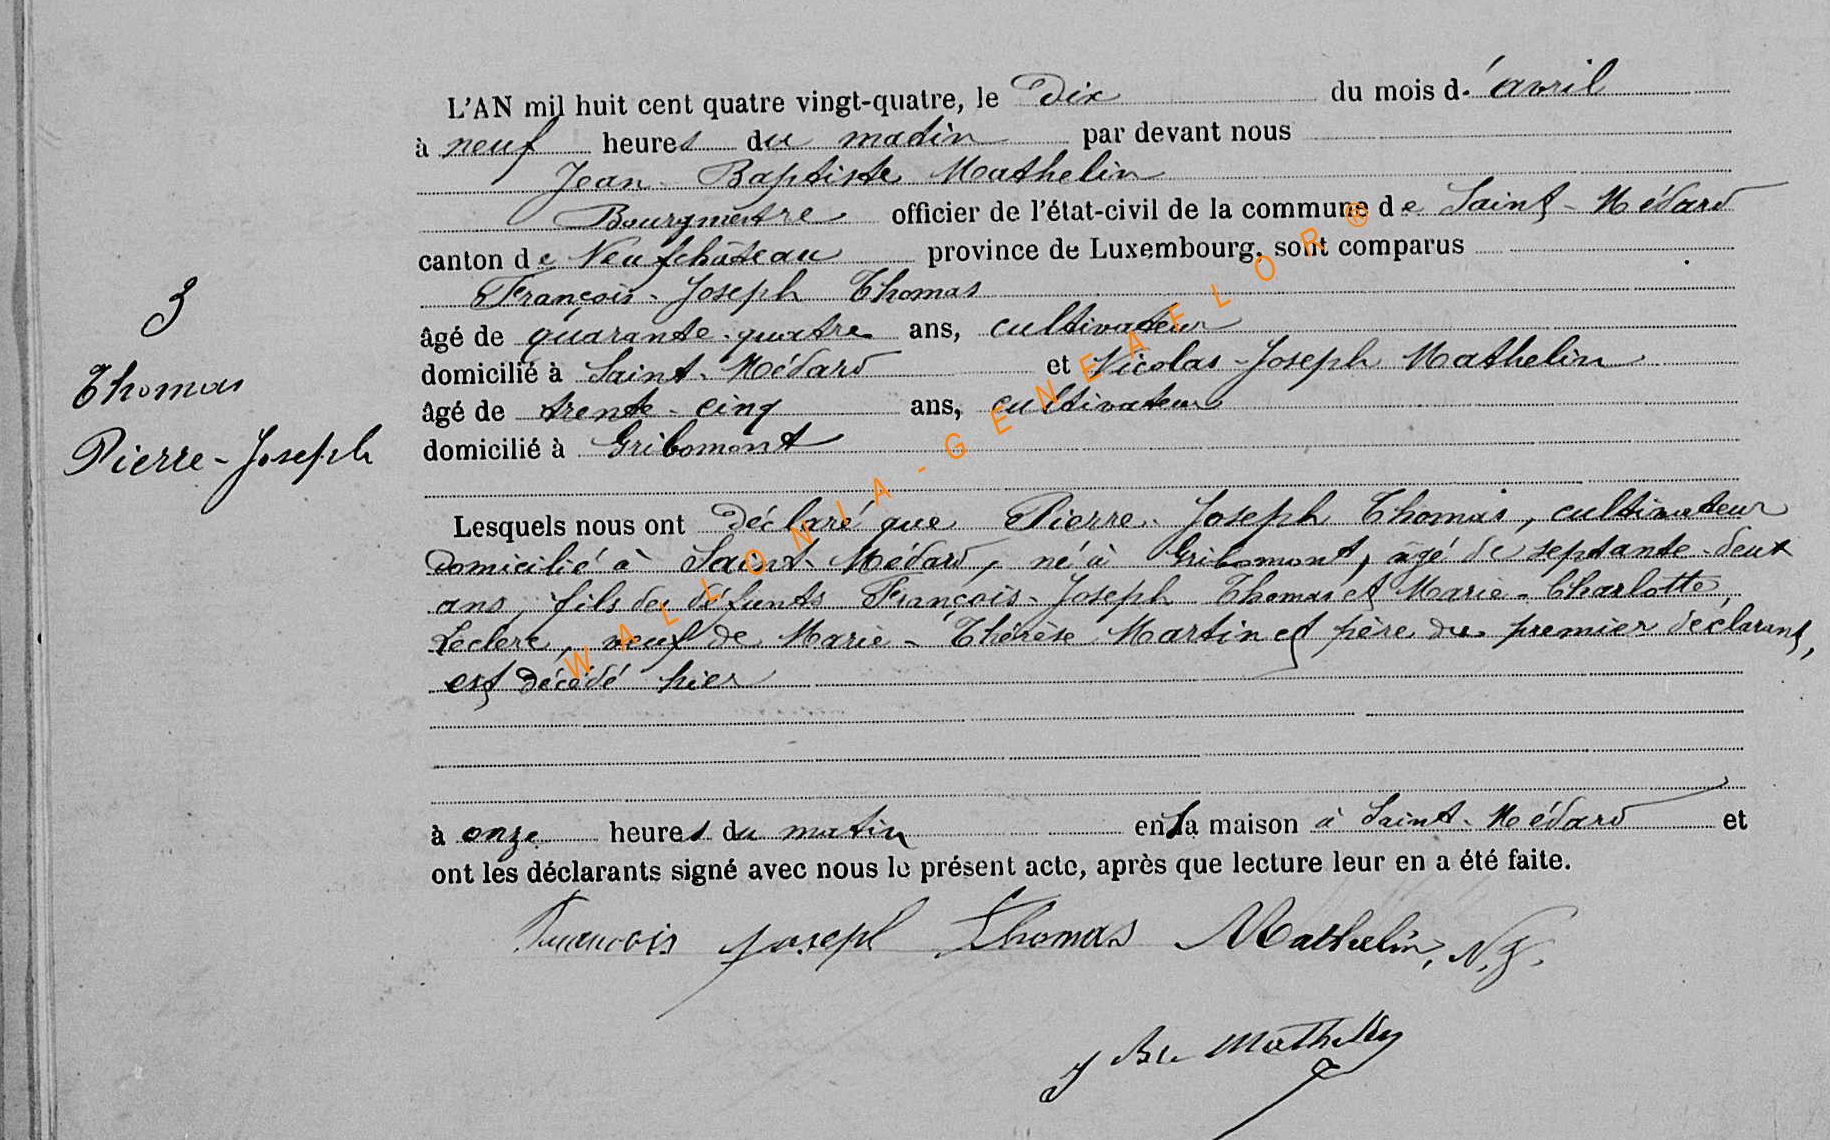 L'AN mil huit cent quatre vingt-quatre, le Dix du mois d'avril
à neuf heures du matin par devant nous
Jean Baptiste Mathelin
Bourgmestre officier de l'état-civil de la commune de Saint-Médard
canton de Neufchâteau province de Luxembourg, sont comparus
François-Joseph Thomas
âgé de quarante-quatre ans, cultivateur
domicilié à Saint-Médard et Nicolas-Joseph Mathelin
âgé de trente-cinq ans, cultivateur
domicilié à Gribomont
3
Thomas
Pierre-Joseph
Lesquels nous ont déclaré que Pierre-Joseph Thomas, cultivateur
domicilié à Saint-Médard, né à Gribomont, âgé de septante-deux
ans, fils des défunts François-Joseph Thomas et Marie-Charlotte
Leclere, veuf de Marie-Thérèse Martin et père du premier déclarant,
est décédé hier
à onze heures du matin en sa maison à Saint-Médard et
ont les déclarants signé avec nous le présent acte, après que lecture leur en a été faite.
Francois joseph Thomas Mathelin, N. J.
J Bte Mathelin
WALLONIA-GENEAFLOR®